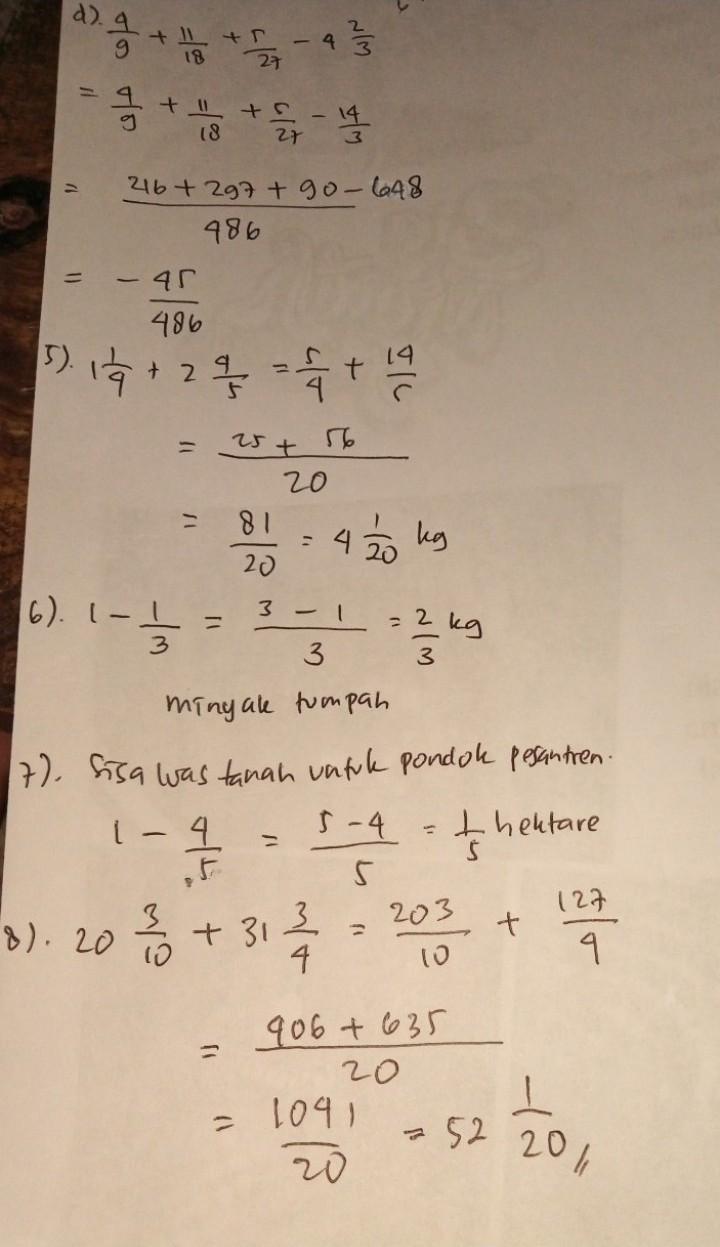 d). 4/9 + 11/18 + 5/27 - 4 2/3
= 4/9 + 11/18 + 5/27 - 14/3
= 216 + 297 + 90 - 648 / 486
= - 45/486
5). 1 1/4 + 2 4/5 = 5/4 + 14/5
= 25 + 56 / 20
= 81/20 = 4 1/20 kg
6). 1 - 1/3 = 3 - 1 / 3 = 2/3 kg
minyak tumpah
7). Sisa luas tanah untuk pondok pesantren.
1 - 4/5 = 5 - 4 / 5 = 1/5 hektare
8). 20 3/10 + 31 3/4 = 203/10 + 127/4
= 406 + 635 / 20
= 1041/20 = 52 1/20 //